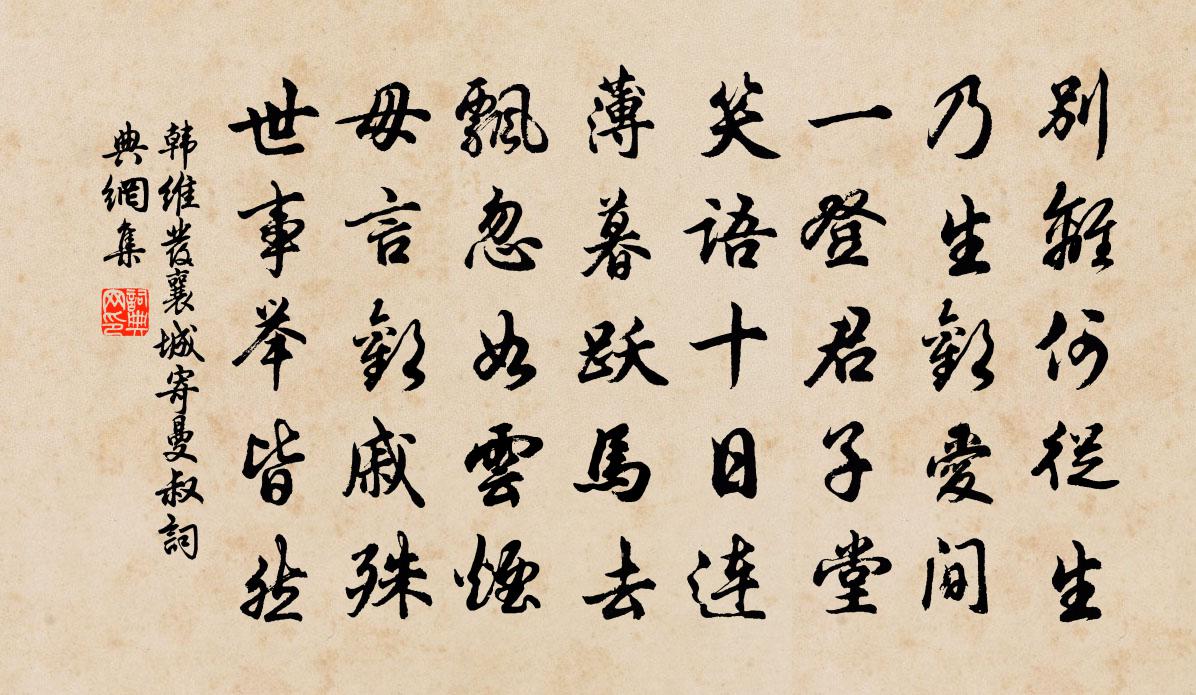 別離何從生
乃生歡愛間
一登君子堂
笑語十日連
薄暮跃馬去
飄忽如雲煙
毋言歡戚殊
世事举皆然
韩維发襄城寄曼叔詞
典網集
詞典
网印